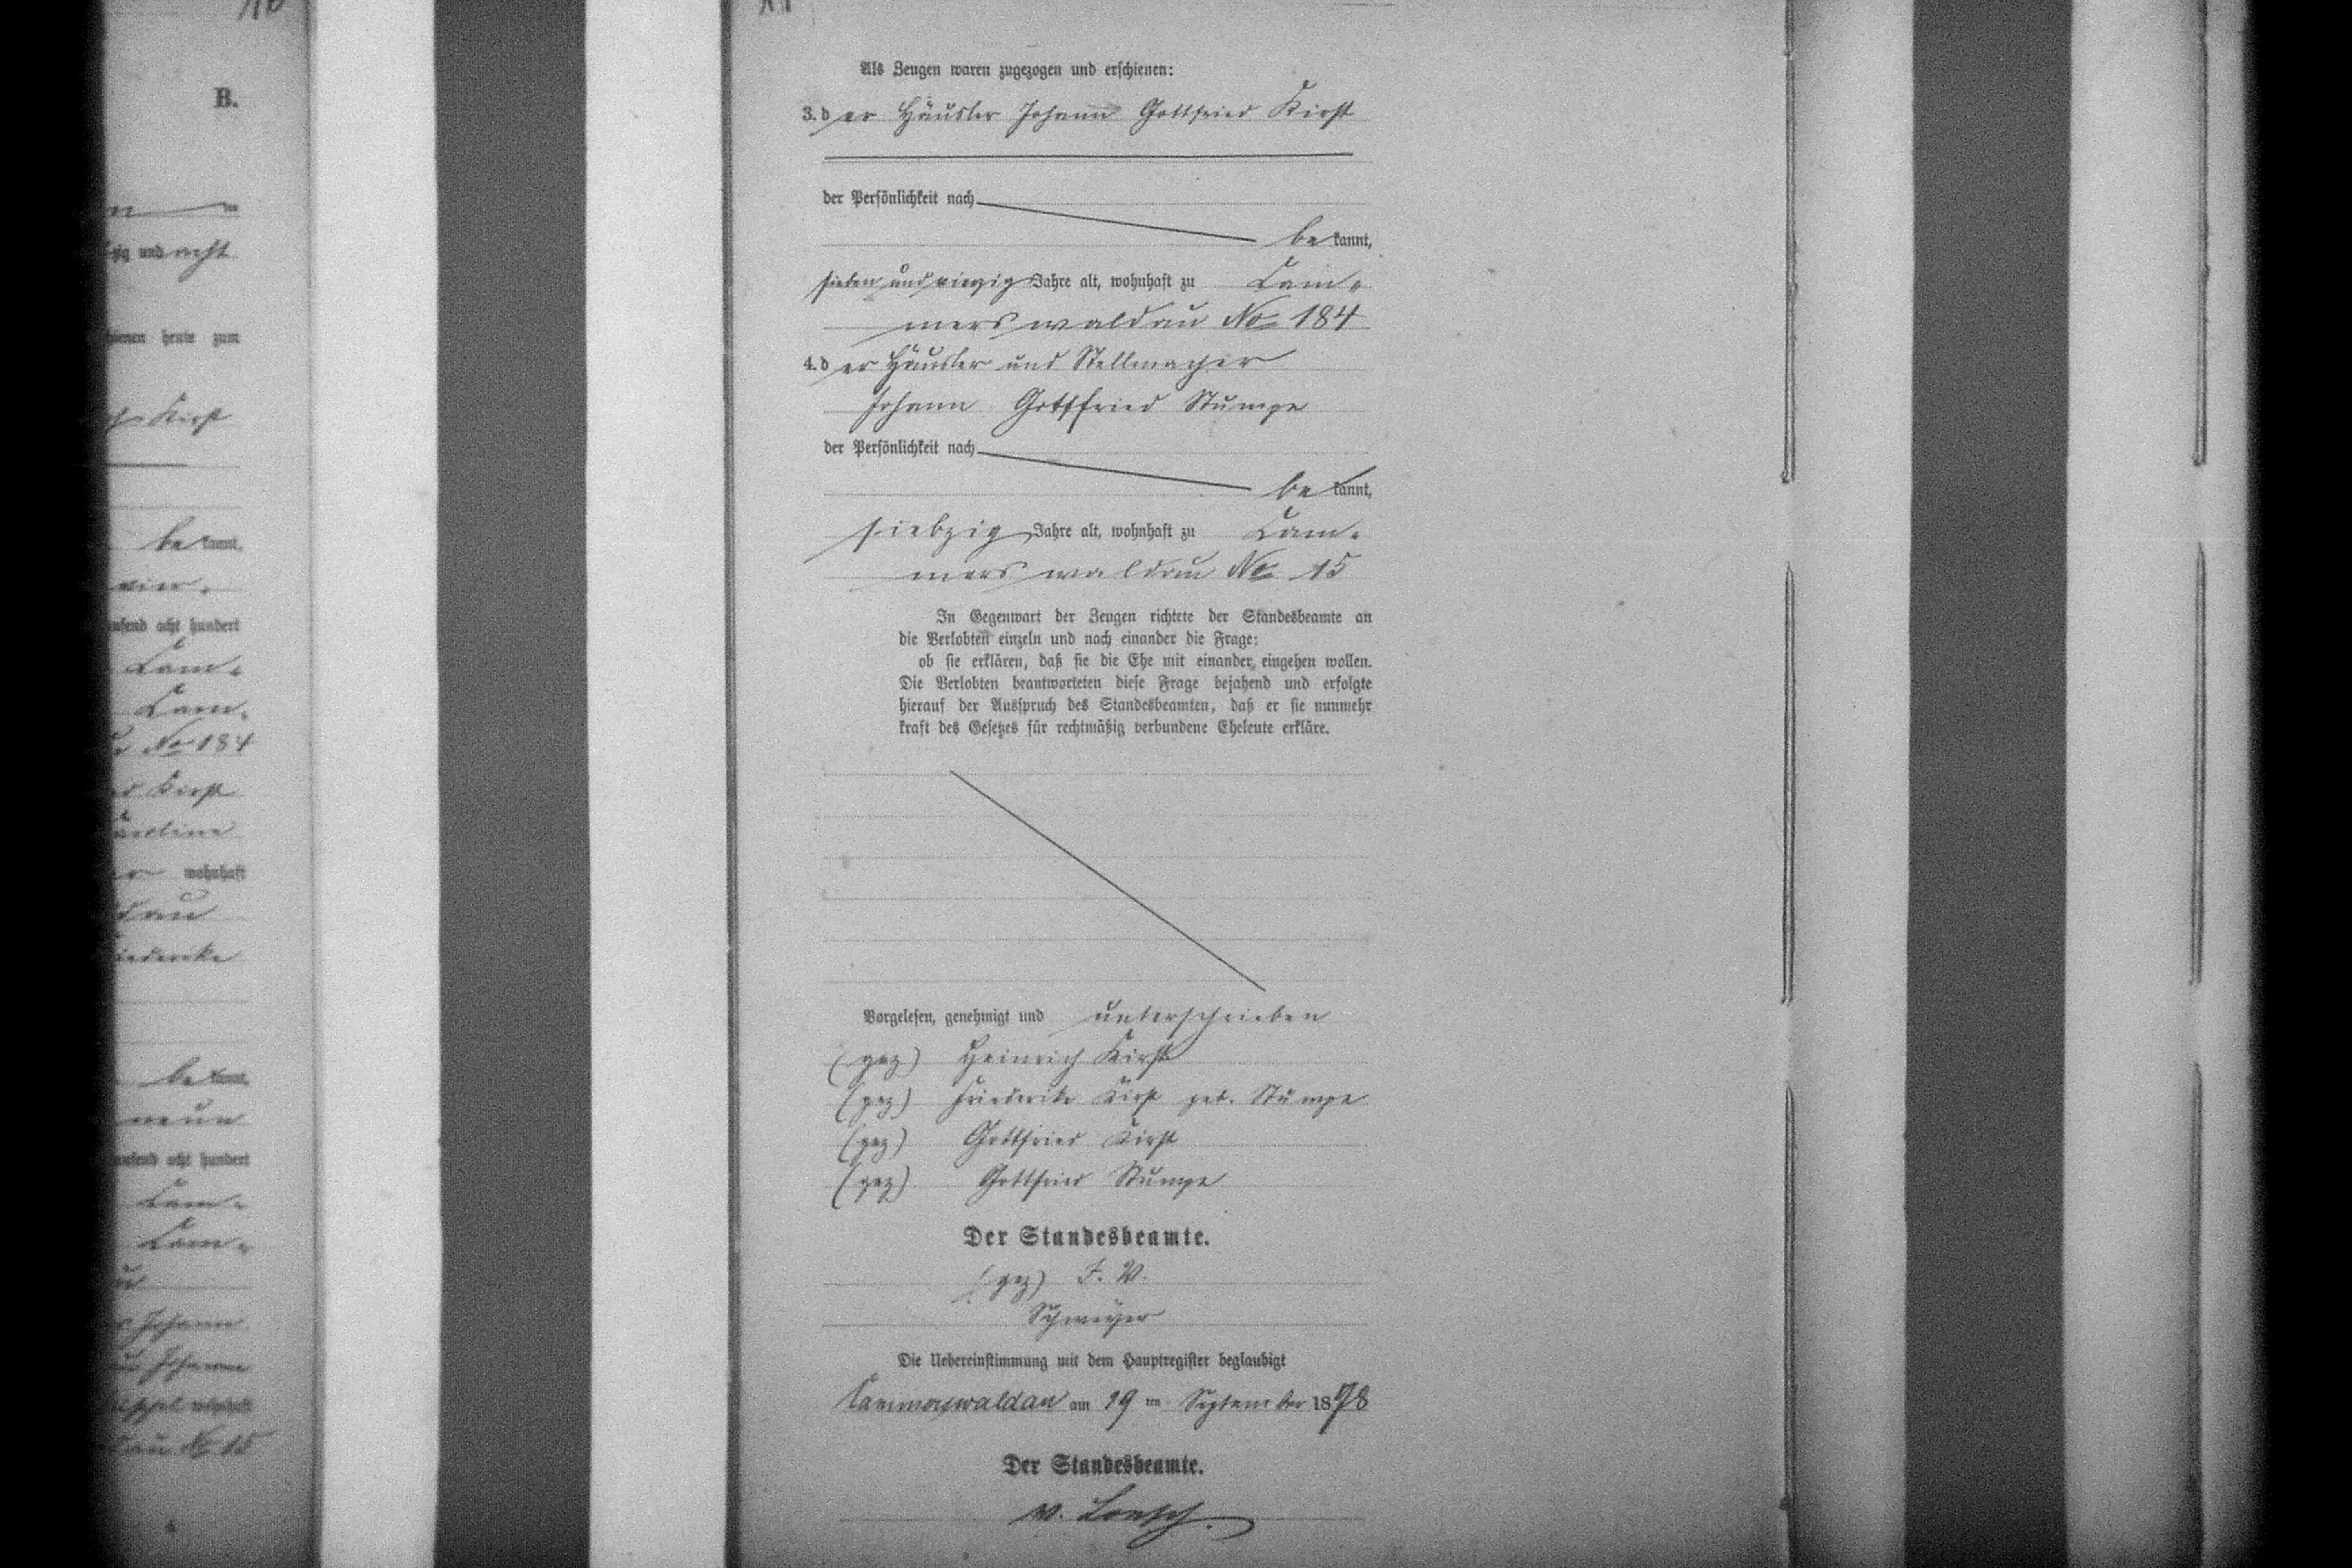 B.
und acht
heute zum
Kirst
be kannt,
vier-
acht hundert
Cam-
Cam-
No 184
Kirst
wohnhaft
dau
be kannt,
neun
acht hundert
Cam-
Cam-
Johann
No 15
Als Zeugen waren zugezogen und erschienen:
3. d er Häusler Johann Gottfried Kirst
der Persönlichkeit nach
be kannt,
sieben und vierzig Jahre alt, wohnhaft zu Cam-
merswaldau No 184
4. d er Häusler und Stellmacher
Johann Gottfried Stumpe
der Persönlichkeit nach
be kannt,
siebzig Jahre alt, wohnhaft zu Cam-
merswaldau No 15
In Gegenwart der Zeugen richtete der Standesbeamte an
die Verlobten einzeln und nach einander die Frage:
ob sie erklären, daß sie die Ehe mit einander eingehen wollen.
Die Verlobten beantworteten diese Frage bejahend und erfolgte
hierauf der Ausspruch des Standesbeamten, daß er sie nunmehr
kraft des Gesetzes für rechtmäßig verbundene Eheleute erkläre.
Vorgelesen, genehmigt und unterschrieben
(gez) Heinrich Kirst
(gez) Friederike Kirst geb. Stumpe
(gez) Gottfried Kirst
(gez) Gottfried Stumpe
Der Standesbeamte.
(gez) I. V.
Die Uebereinstimmung mit dem Hauptregister beglaubigt
Cammerswaldau am 19 ten September 1878
Der Standesbeamte.